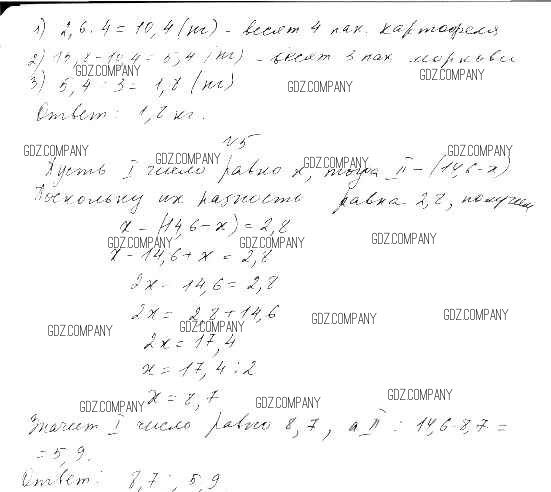 1) 2,6 · 4 = 10,4 (кг) - весят 4 пак. картофеля
2) 15,8 - 10,4 = 5,4 (кг) - весят 3 пак моркови
GDZ.COMPANY GDZ.COMPANY
3) 5,4 : 3 = 1,8 (кг) GDZ.COMPANY
Ответ: 1,8 кг.
№5
GDZ.COMPANY GDZ.COMPANY GDZ.COMPANY GDZ.COMPANY
Пусть I число равно x, тогда II - (14,6-x)
Поскольку их разность равна 2,8, получаем
x - (14,6 - x) = 2,8
GDZ.COMPANY GDZ.COMPANY GDZ.COMPANY
x - 14,6 + x = 2,8
2x - 14,6 = 2,8
2x = 2,8 + 14,6
GDZ.COMPANY GDZ.COMPANY GDZ.COMPANY GDZ.COMPANY
2x = 17,4
x = 17,4 : 2
x = 8,7
GDZ.COMPANY GDZ.COMPANY GDZ.COMPANY
Значит I число равно 8,7, а II : 14,6-8,7 =
= 5,9.
Ответ: 8,7 ; 5,9.